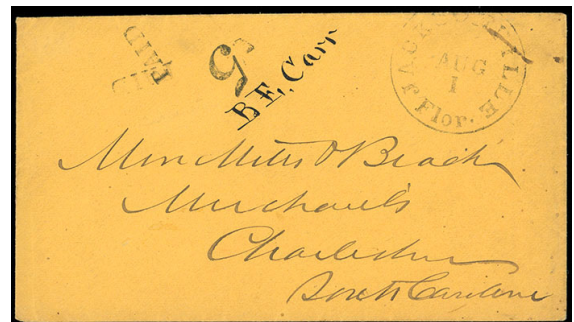 PAID
5
B.F. Carr
JACKSONVILLE
Flor.
AUG
1
Mess Mills & Beach
Merchants
Charleston
South Carolina